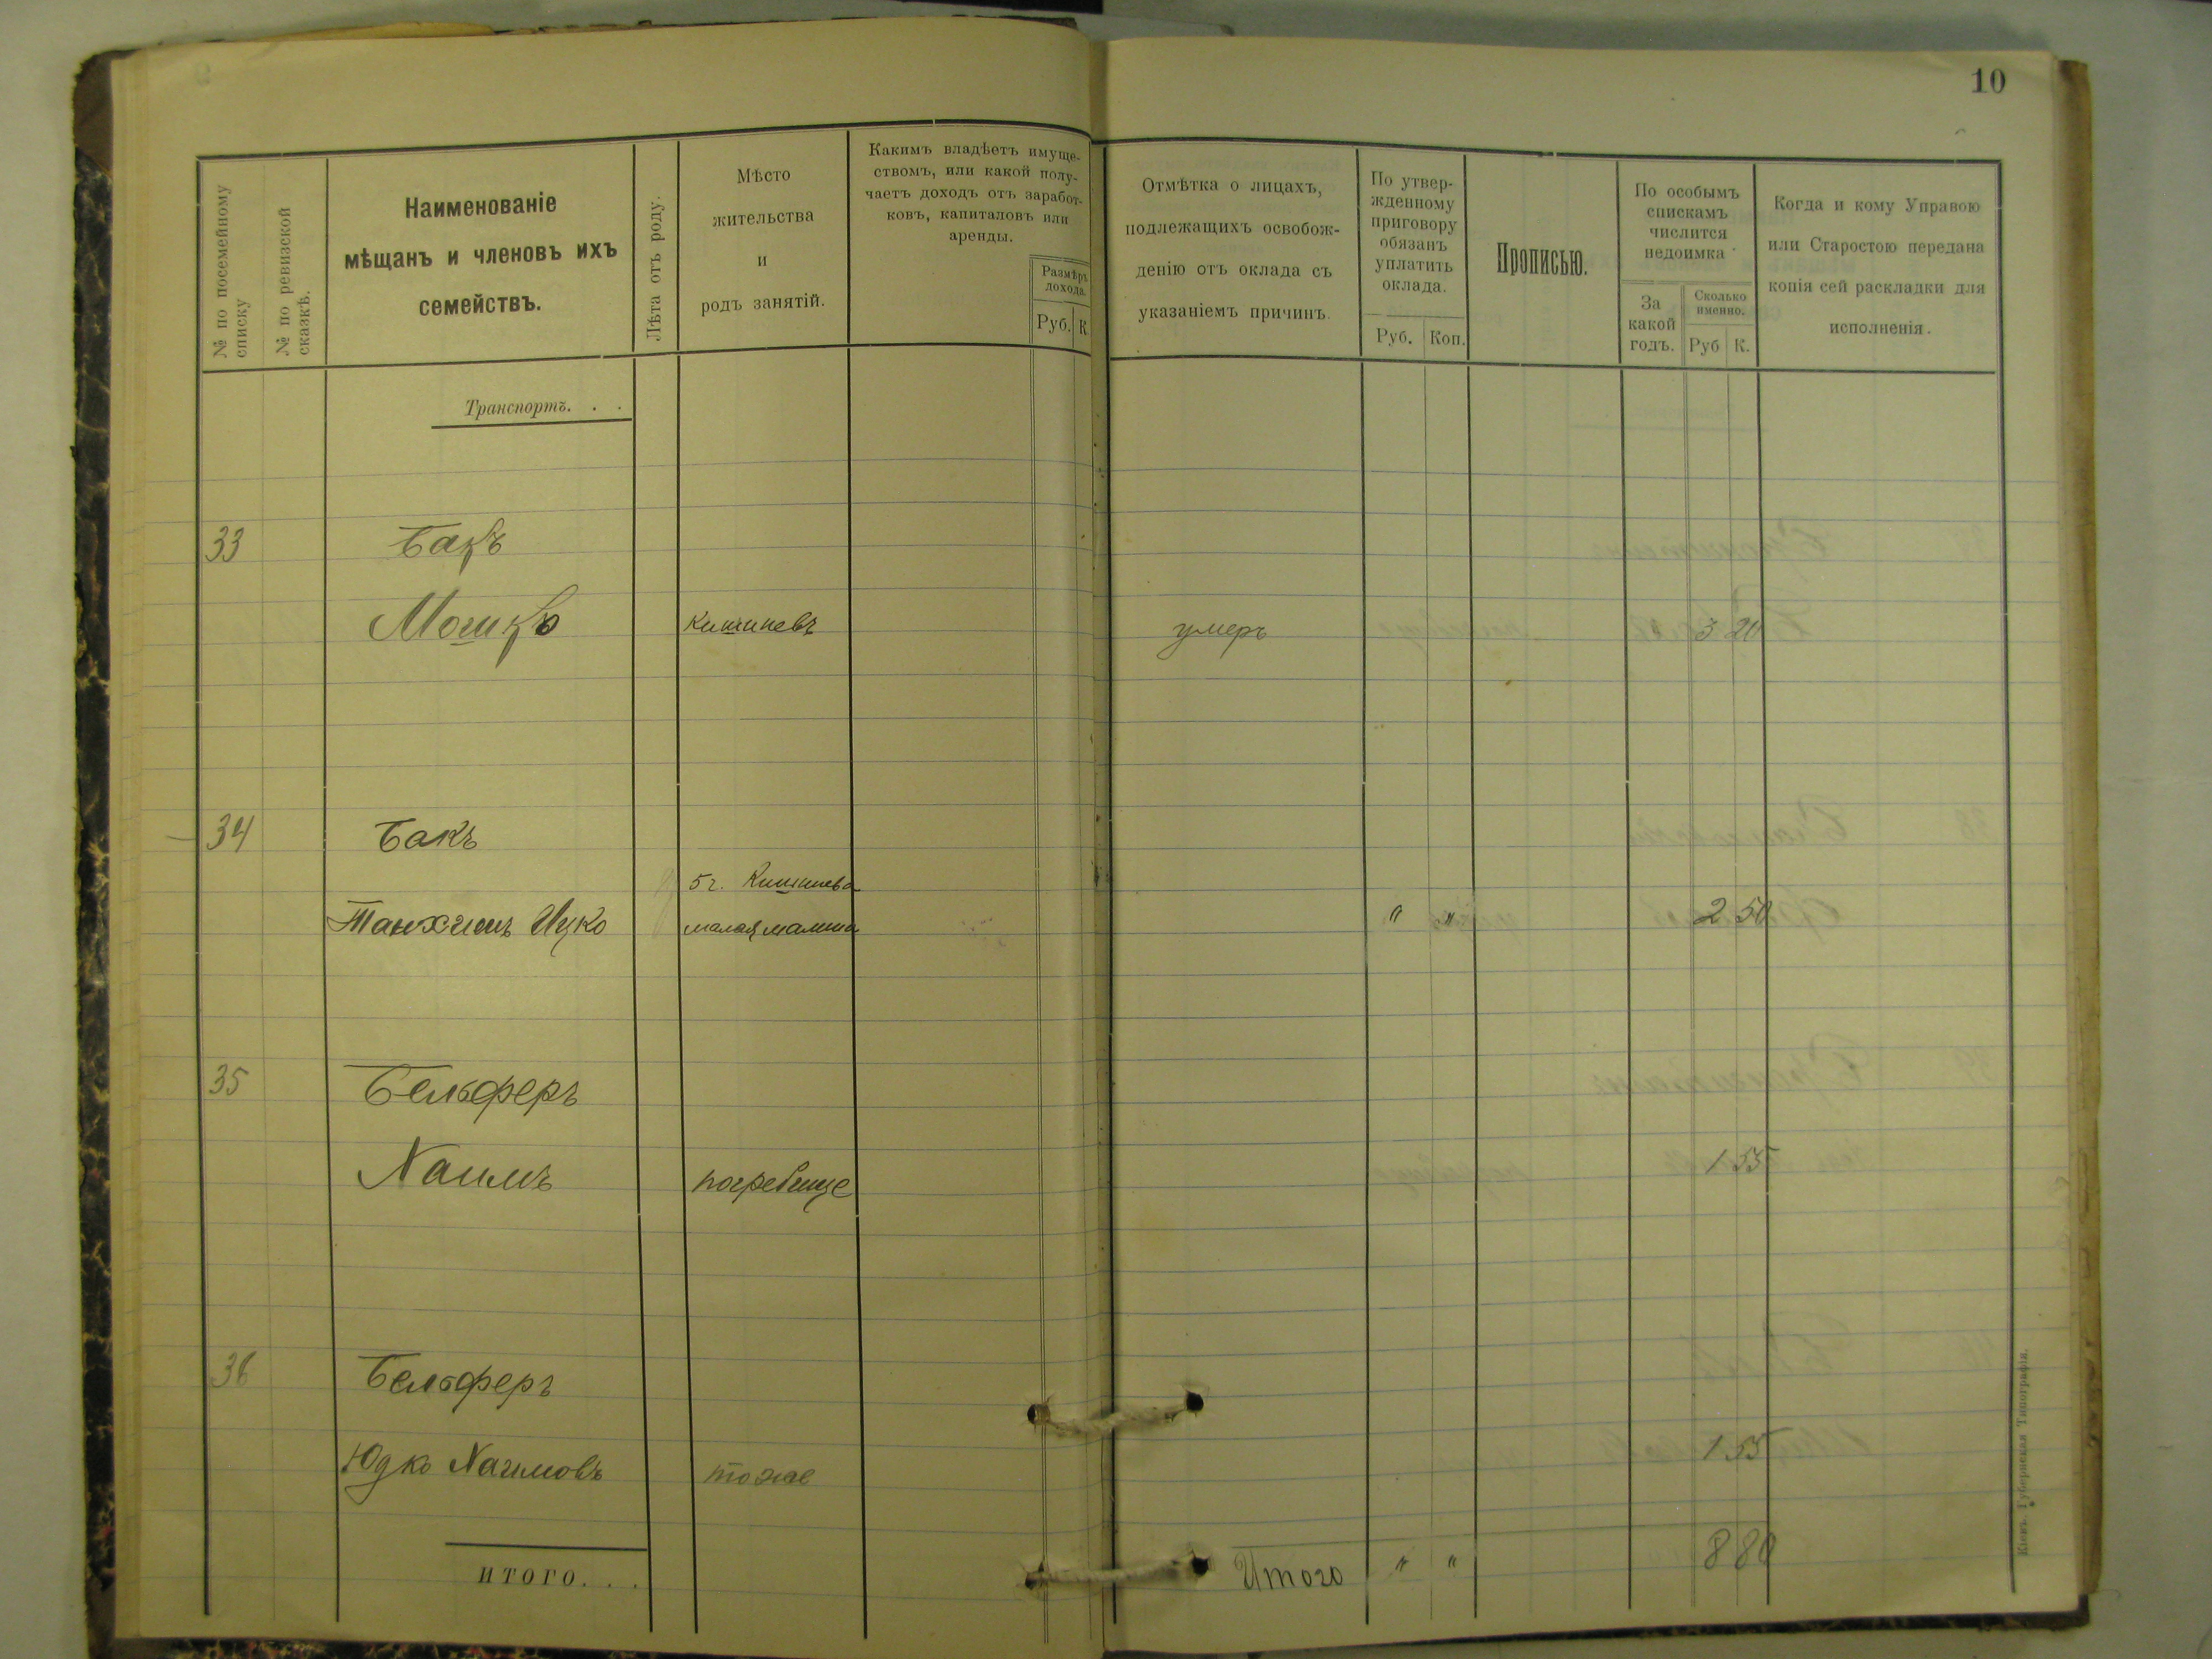 10
№ по посемейному
списку
№ по ревизской
сказкѣ.
Наименованіе
мѣщанъ и членовъ ихъ
семействъ.
Лѣта отъ роду.
Мѣсто
жительства
и
родъ занятій.
Какимъ владѣетъ имуще-
ствомъ, или какой полу-
чаетъ доходъ отъ заработ-
ковъ, капиталовъ или
аренды.
Размѣръ
дохода.
Руб. К.
Отмѣтка о лицахъ,
подлежащихъ освобож-
денію отъ оклада съ
указаніемъ причинъ.
По утвер-
жденному
приговору
обязанъ
уплатить
оклада.
Руб. Коп.
Прописью.
По особымъ
спискамъ
числится
недоимка
За
какой
годъ.
Сколько
именно.
Руб К.
Когда и кому Управою
или Старостою передана
копія сей раскладки для
исполненія.
Транспортъ. . .
33 Бакъ
Мошко Кишиневъ умеръ 3 20
34 Бакъ
Танхимъ Ицко
малая " " 2 50
35 Бельферъ
Хаимъ погребище 1 55
36 Бельферъ
Юдко Хаимовъ тоже 1 55
ИТОГО. . . Итого " " 8 80
Кіевъ. Губернская Типографія.